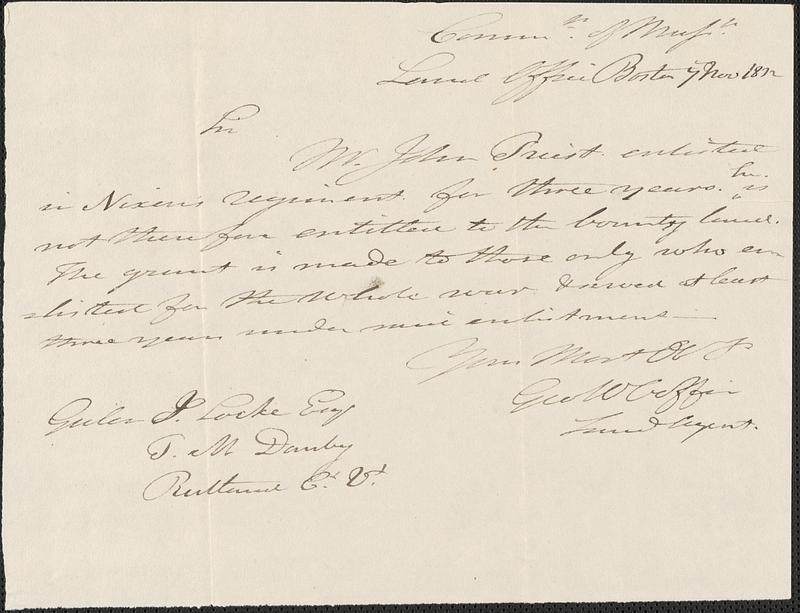 Commnth. of Massts.
Land Office Boston 7 Nov 18
Sir
Mr. John Priest enlisted
in Nixon's regiment for three years. he is
not therefore entitled to the bounty land.
The grant is made to those only who en
listed for the whole war & served at least
three years under said enlistment
Your Most Ob S
Geo W Coffin
Land Agent.
Galen J. Locke Esq
P. M Danby
Rutland Co. Vt.